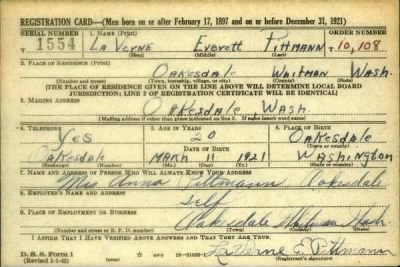 REGISTRATION CARD—(Men born on or after February 17, 1897 and on or before December 31, 1921)
SERIAL NUMBER
1554
1. NAME (Print)
La Verne Everett Pittmann
ORDER NUMBER
T 10,108
(First) (Middle) (Last)
2. PLACE OF RESIDENCE (Print)
Oakesdale Whitman Wash.
(Number and street) (Town, township, village, or city) (County) (State)
[THE PLACE OF RESIDENCE GIVEN ON THE LINE ABOVE WILL DETERMINE LOCAL BOARD
JURISDICTION; LINE 2 OF REGISTRATION CERTIFICATE WILL BE IDENTICAL]
3. MAILING ADDRESS
Oakesdale Wash.
[Mailing address if other than place indicated on line 2. If same insert word same]
4. TELEPHONE
Yes
Oakesdale
5. AGE IN YEARS
20
DATE OF BIRTH
March 11 1921
6. PLACE OF BIRTH
Oakesdale
Washington
7. NAME AND ADDRESS OF PERSON WHO WILL ALWAYS KNOW YOUR ADDRESS
Mrs Anna Pittmann Oakesdale
8. EMPLOYER'S NAME AND ADDRESS
self
9. PLACE OF EMPLOYMENT OR BUSINESS
Oakesdale Whitman Wash
I AFFIRM THAT I HAVE VERIFIED ABOVE ANSWERS AND THAT THEY ARE TRUE.
D. S. S. Form 1
LaVerne E. Pittmann
(Registrant's signature)